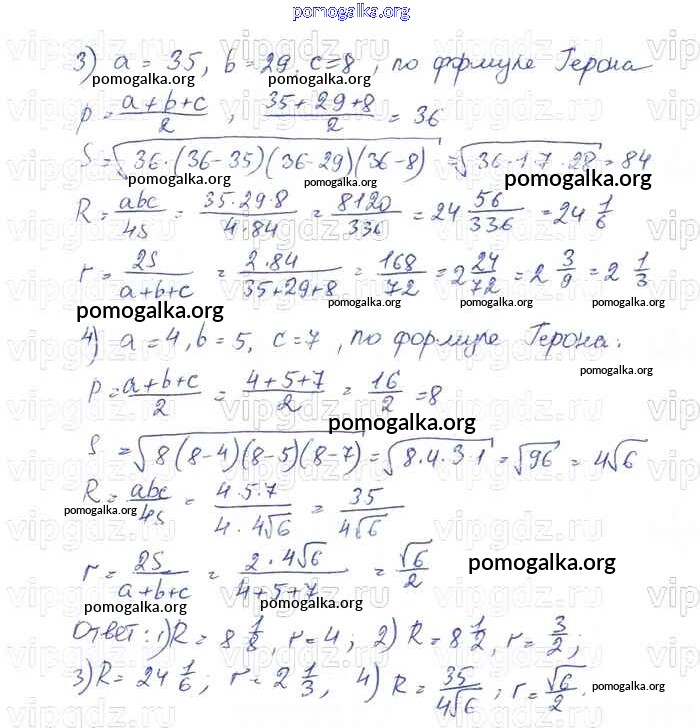 pomogalka.org
3) a = 35, b = 29, c = 8, по формуле Герона
pomogalka.org pomogalka.org
p = (a+b+c)/2, (35+29+8)/2 = 36
S = √(36·(36-35)(36-29)(36-8)) = √(36·1·7·28) = 84
pomogalka.org pomogalka.org pomogalka.org
R = abc/4S = (35·29·8)/(4·84) = 8120/336 = 24 56/336 = 24 1/6
r = 2S/(a+b+c) = (2·84)/(35+29+8) = 168/72 = 2 24/72 = 2 3/9 = 2 1/3
pomogalka.org pomogalka.org pomogalka.org
4) a = 4, b = 5, c = 7, по формуле Герона:
pomogalka.org
P = (a+b+c)/2 = (4+5+7)/2 = 16/2 = 8
pomogalka.org
S = √(8(8-4)(8-5)(8-7)) = √(8·4·3·1) = √96 = 4√6
R = abc/4S = (4·5·7)/(4·4√6) = 35/(4√6)
pomogalka.org
r = 2S/(a+b+c) = (2·4√6)/(4+5+7) = √6/2
pomogalka.org
pomogalka.org pomogalka.org
Ответ: 1) R = 8 1/8, r = 4; 2) R = 8 1/2, r = 3/2;
3) R = 24 1/6; r = 2 1/3, 4) R = 35/(4√6); r = √6/2.
pomogalka.org